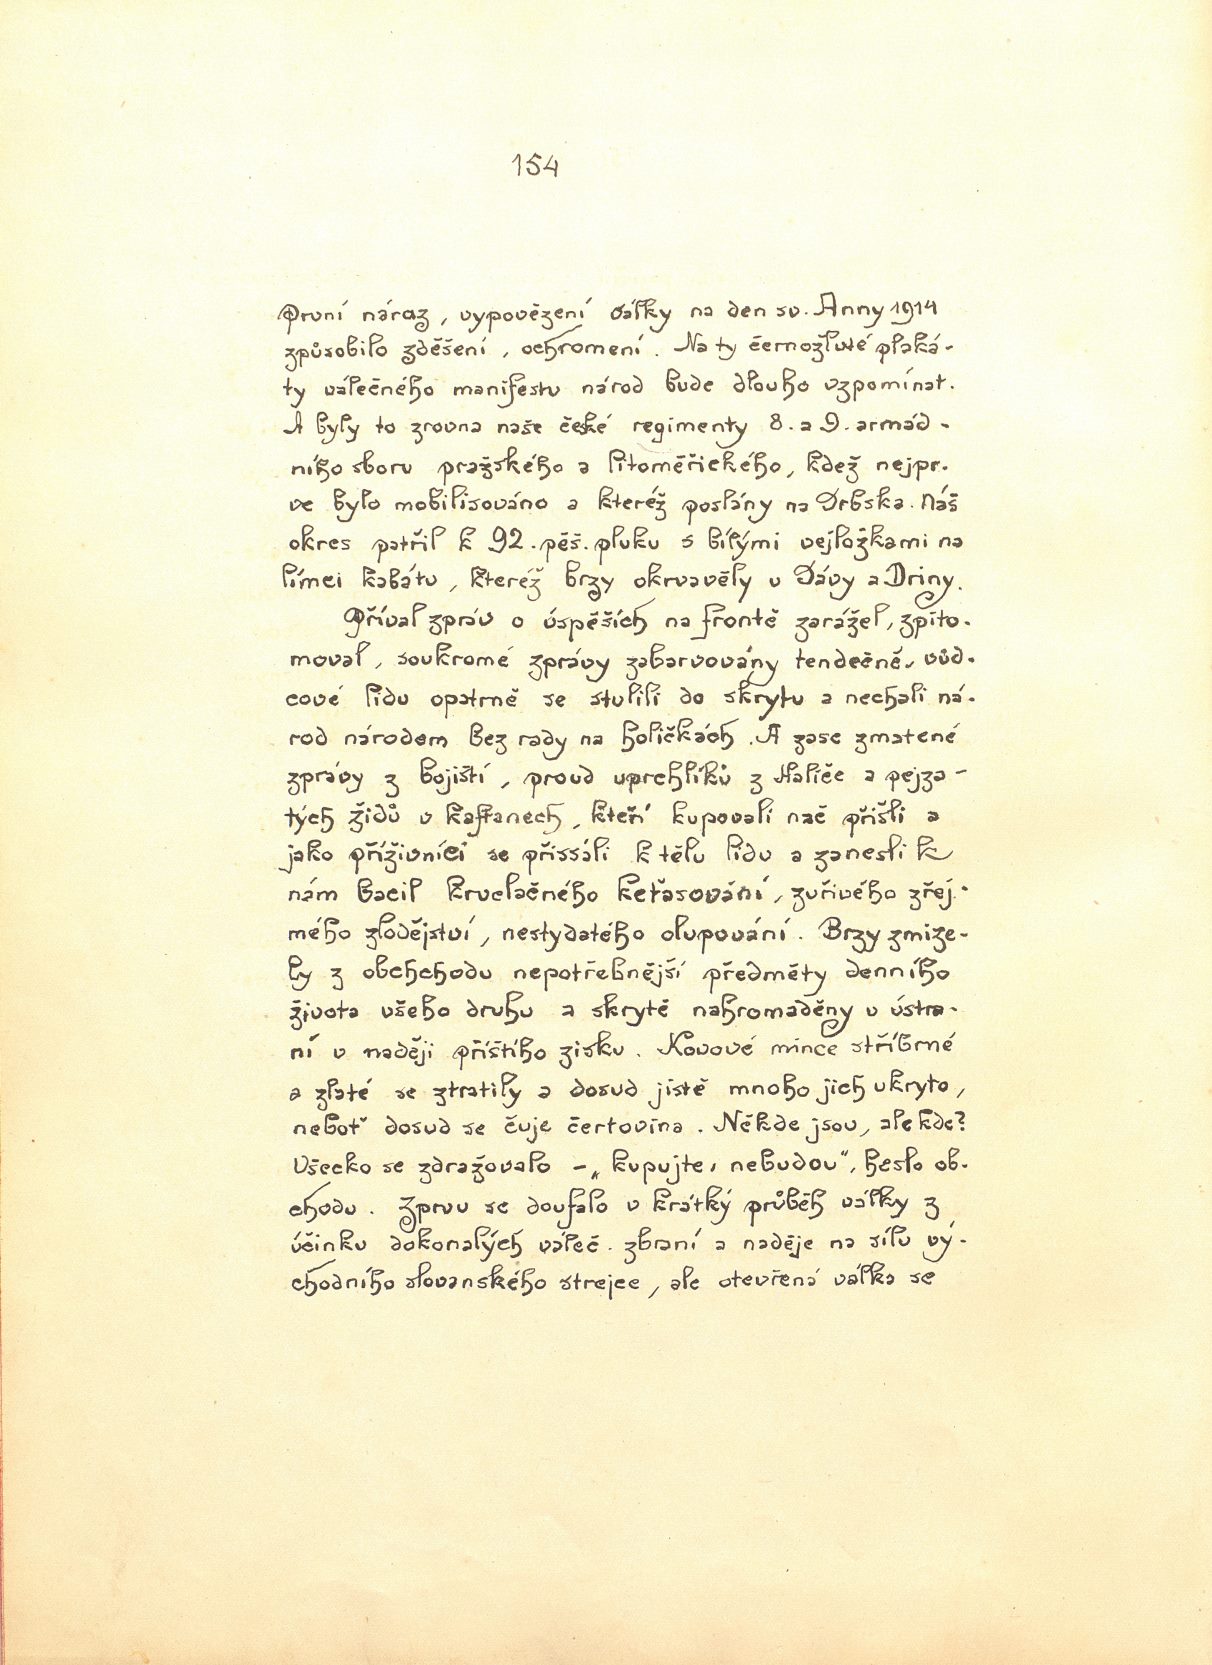 154
První náraz, vypovězení války na den sv. Anny 1914
způsobilo zděšení, ochromení. Na ty černožluté plaká-
ty válečného manifestu národ bude dlouho vzpomínat.
A byly to zrovna naše české regimenty 8. a 9. armád-
ního sboru pražského a litoměřického, kdež nejpr-
ve bylo mobilisováno a kteréž poslány na Srbska. Náš
okres patřil k 92. pěš. pluku s bílými vejložkami na
límci kabátu, kteréž brzy okrvavěly u Sávy a Driny.
Příval zpráv o úspěších na frontě zarážel, zpito-
moval, soukromé zprávy zabarvovány tendečně, vůd-
cové lidu opatrně se stulili do skrytu a nechali ná-
rod národem bez rady na holičkách. A zase zmatené
zprávy z bojiští, proud uprchlíků z Haliče a pejza-
tých židů v kaftanech, kteří kupovali nač přišli a
jako příživníci se přissáli k tělu lidu a zanesli k
nám bacil krvelačného keťasování, zuřivého zřej-
mého zlodějství, nestydatého olupování. Brzy zmize-
ly z obchchodu nepotřebnější předměty denního
života všeho druhu a skrytě nahromaděny v ústra-
ní v naději příštího zisku. Kovové mince stříbrné
a zlaté se ztratily a dosud jistě mnoho jich ukryto,
neboť dosud se čuje čertovina. Někde jsou, ale kde?
Všecko se zdražovalo - „kupujte, nebudou“, heslo ob-
chodu. Zprvu se doufalo v krátký průběh války z
účinku dokonalých váleč. zbraní a naděje na sílu vý-
chodního slovanského strejce, ale otevřená válka se